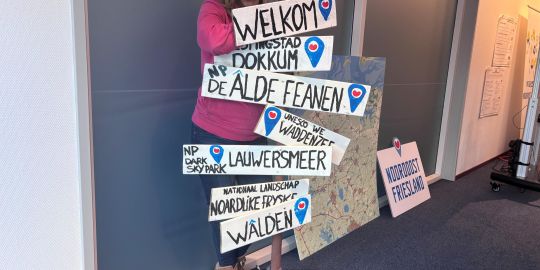 WELKOM
VESTINGSTAD
DOKKUM
NP
DE ALDE FEANEN
UNESCO WE
WADDENZEE
NP
DARK
SKY PARK
LAUWERSMEER
NATIONAAL LANDSCHAP
NOARDLIKE FRYSKE
WÂLDEN
NOORDOOST
FRIESLAND